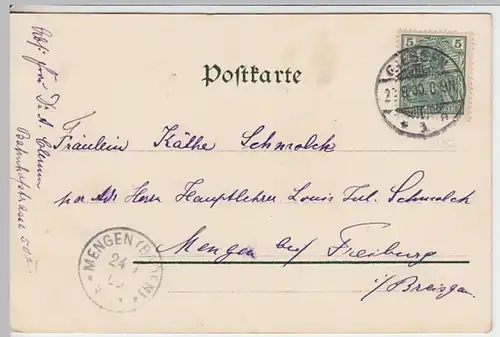 Postkarte
5 5
Fräulein Käthe Schmolck
per Adr. Herrn Hauptlehrer Louis Jul. Schmolck
Mengen auf Freiburg
i/Breisgau.
MENGEN (BADEN)
24
Abs: Frau Dr. A. Clemm
Bahnhofstrasse 50